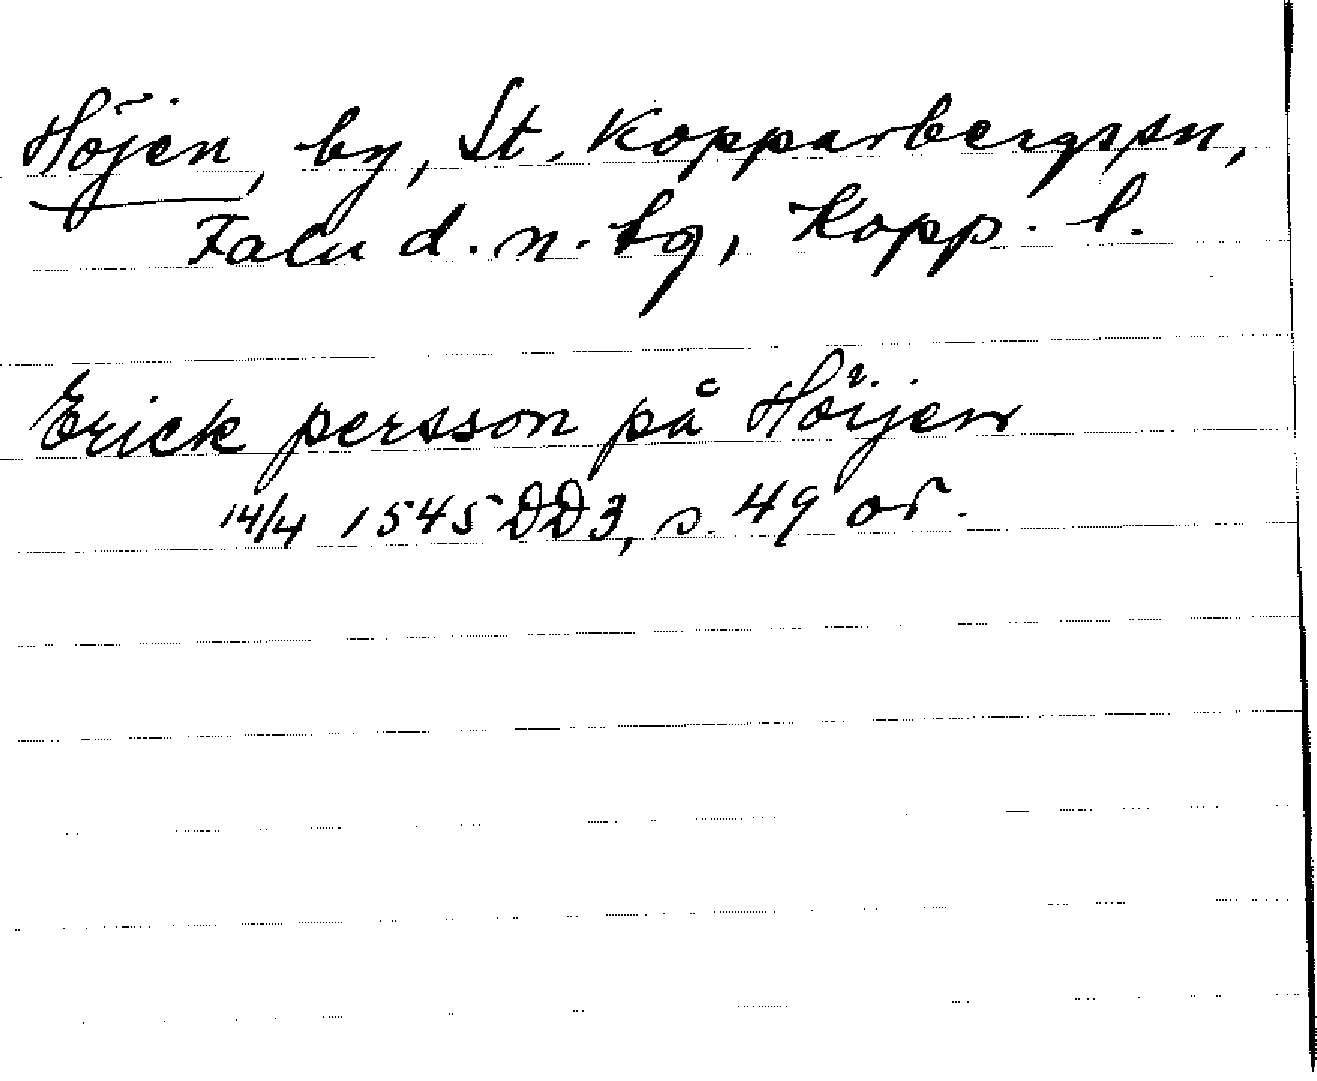 Höjen, by, St. Kopparbergssn,
Falu d. n. bg, Kopp. l.
Erick persson på Höijen
14/4 1545 DD3, s. 49 or.